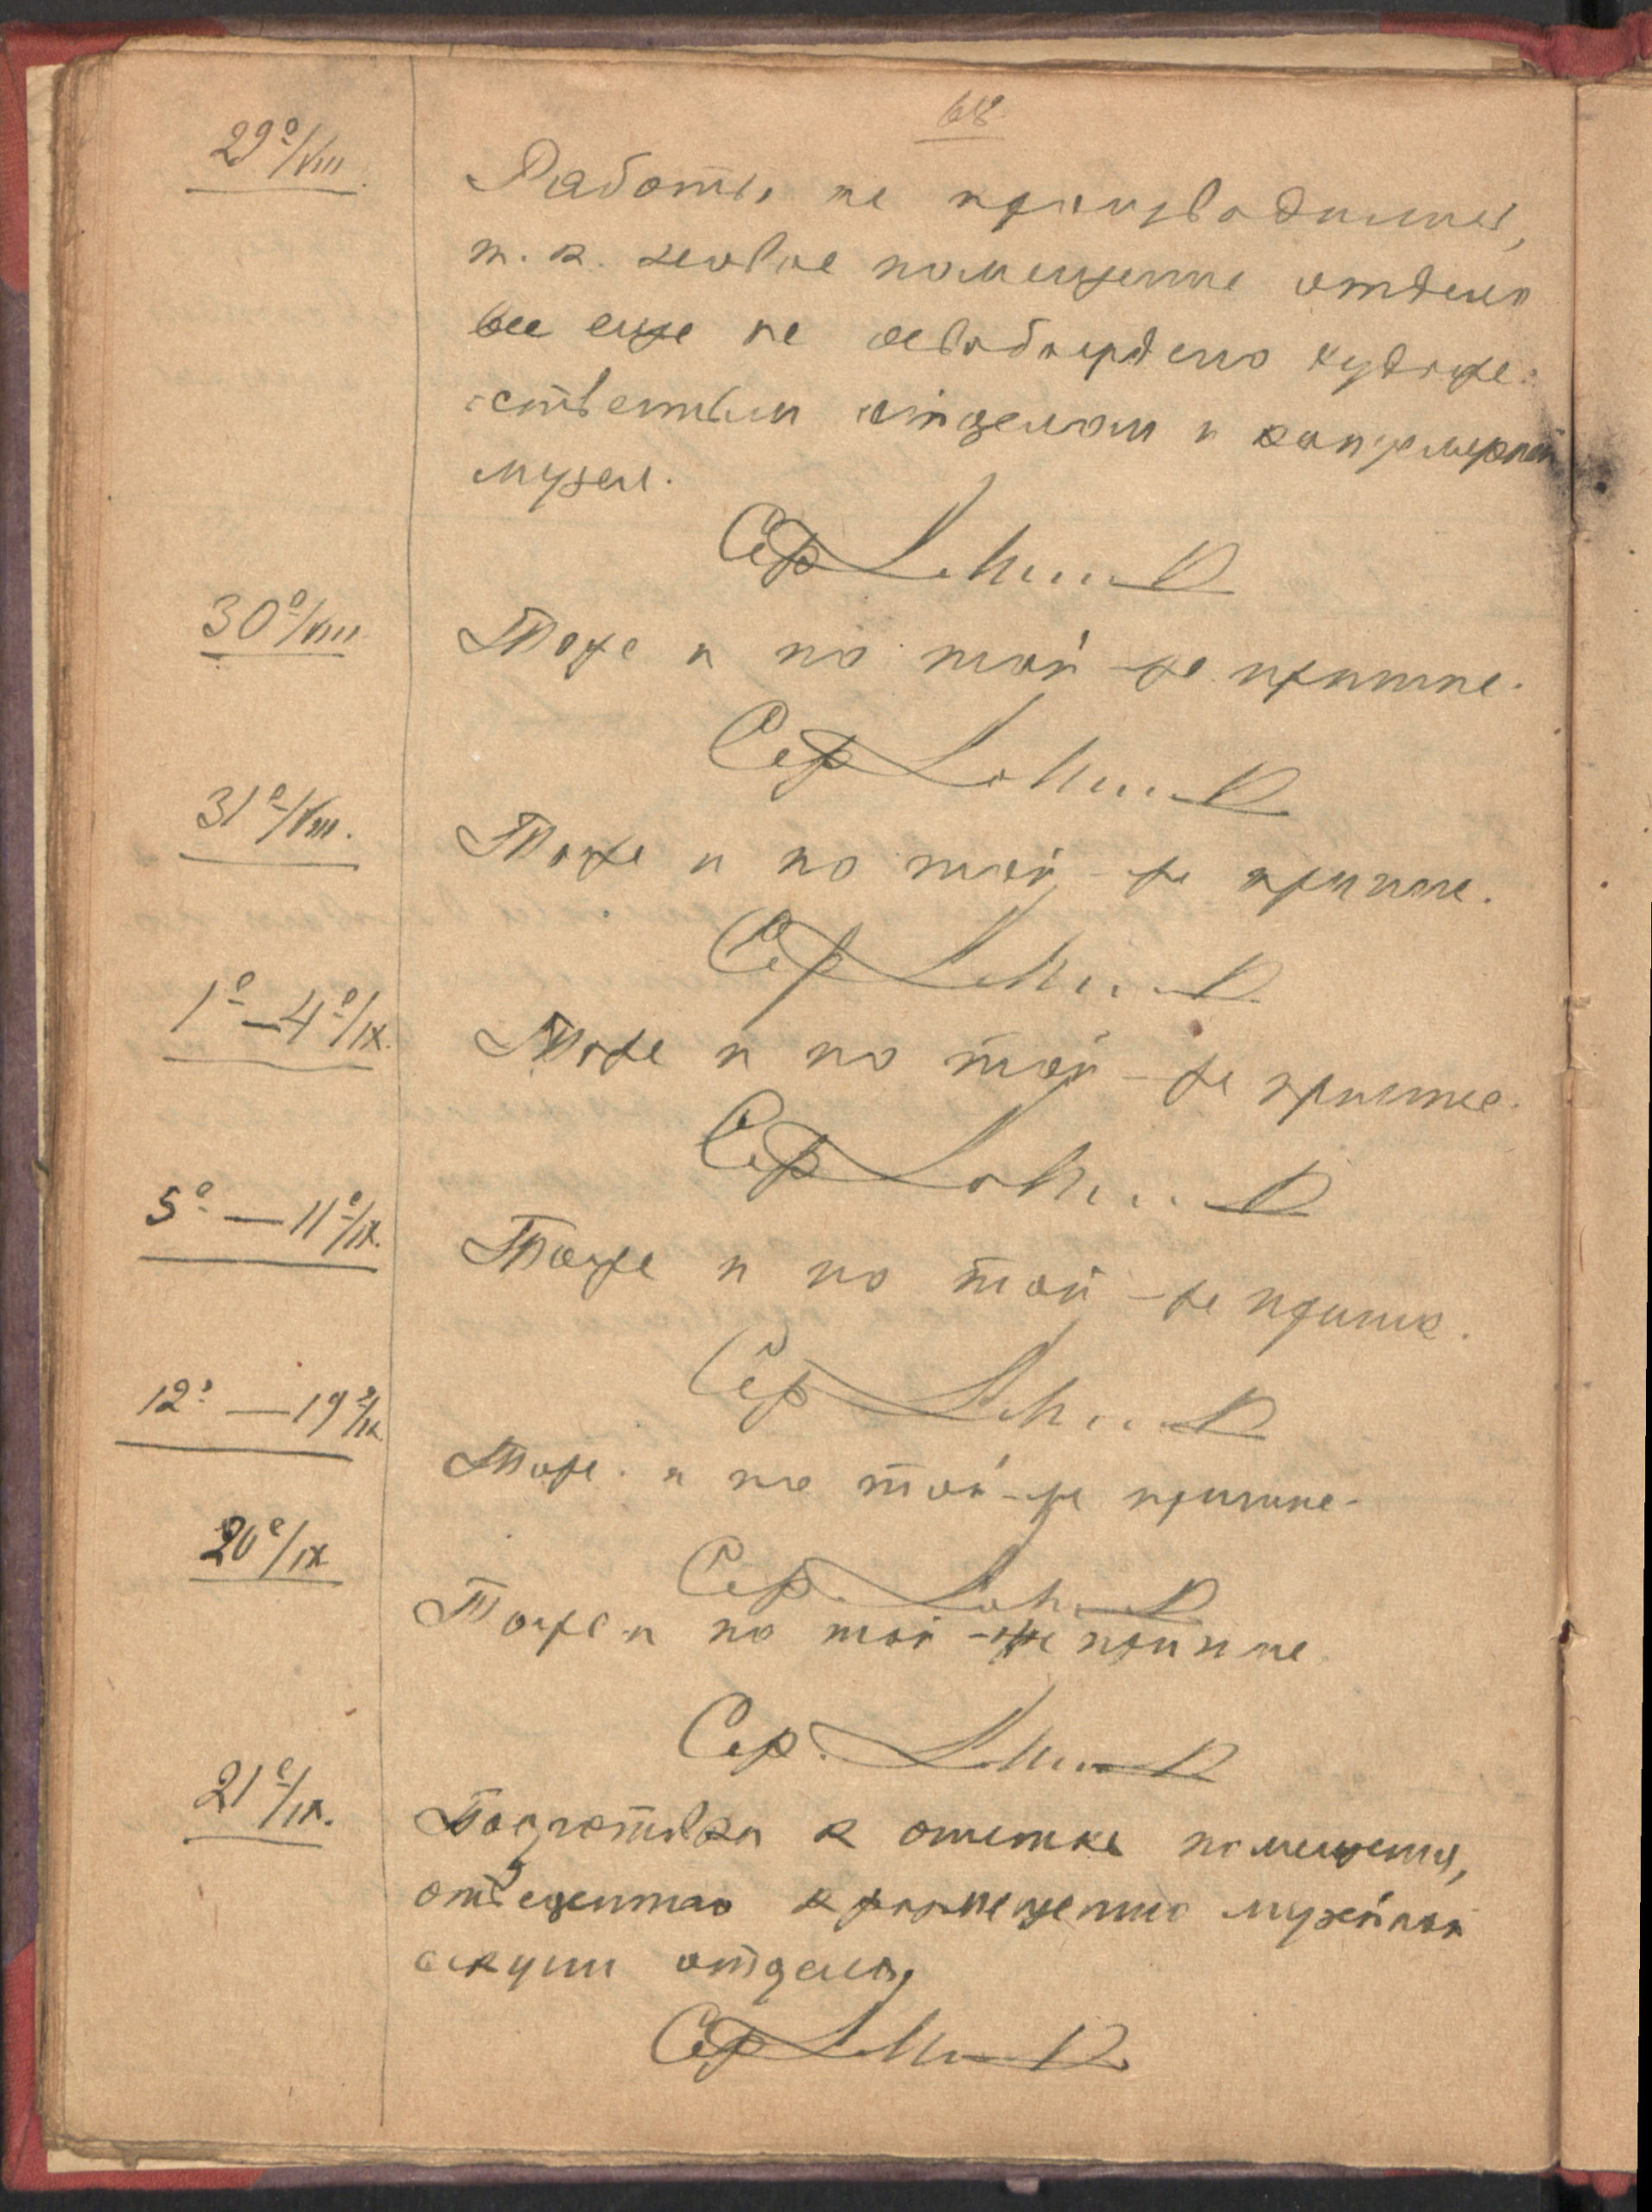 68.
29º/VIII.
Работы не производились,
т. к. новое помещение отдела
все еще не освобождено художе-
ственным отделом и канцелярией
музея.
Сер
30º/VIII
Тоже и по той-же причине.
Сер
31º/VIII.
Тоже и по той-же причине.
Сер
1º—4º/IX.
Тоже и по той-же причине.
Сер
5º—11º/IX.
Тоже и по той-же причине.
Сер
12º—19º/IX
Тоже и по той-же причине.
Сер.
20º/IX
Тоже и по той-же причине.
Сер.
21º/IX.
Подготовка к очистке помещения,
отведенного к размещению музейной
секции отдела.
Сер